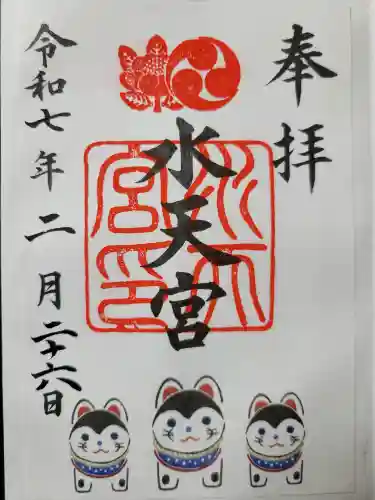 奉拝
水天宮
水天宮印
令和七年二月二十六日